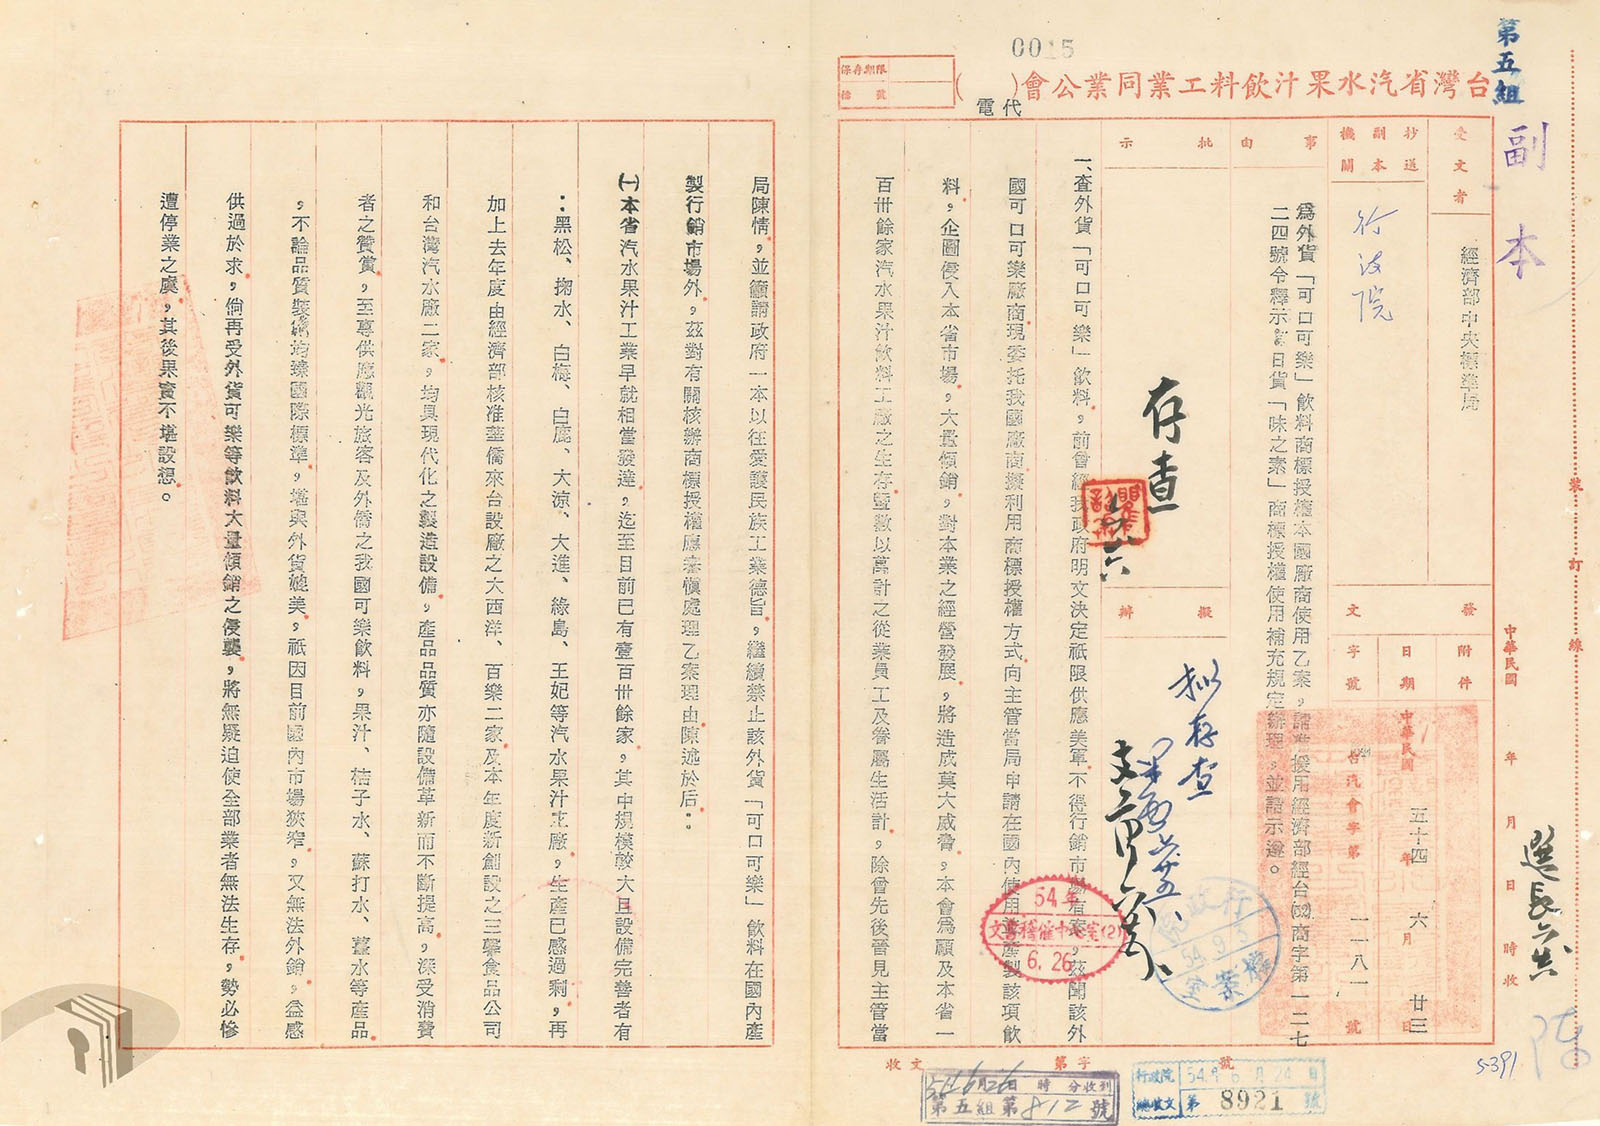 0015
保存期限
檔號
台灣省汽水果汁飲料工業同業公會（　）
代電
第五組
副本
受文者
經濟部中央標準局
抄送副本機關
行政院
事由
為外貨「可口可樂」飲料商標授權本國廠商使用乙案，請准援用經濟部經台(52)商字第一二七
二四號令釋示對日貨「味之素」商標授權使用補充規定辦理，並請示遵。
批示
存查
擬辦
擬存查
發文
附件
日期
中華民國五十四年六月廿三日
字號
台汽會字第一一八一號
一、查外貨「可口可樂」飲料，前曾經我政府明文決定祇限供應美軍不得行銷市場有案，茲聞該外
國可口可樂廠商現委托我國廠商擬利用商標授權方式向主管當局申請在國內使用並產製該項飲
料，企圖侵入本省市場，大量傾銷，對本業之經營發展，將造成莫大威脅，本會為顧及本省一
百卅餘家汽水果汁飲料工廠之生存暨數以萬計之從業員工及眷屬生活計，除曾先後晉見主管當
局陳情，並籲請政府一本以往愛護民族工業德旨，繼續禁止該外貨「可口可樂」飲料在國內產
製行銷市場外，茲對有關核辦商標授權應審慎處理乙案理由陳述於后：
㈠本省汽水果汁工業早就相當發達，迄至目前已有壹百卅餘家，其中規模較大且設備完善者有
：黑松、掬水、白梅、白鹿、大涼、大進、綠島、王妃等汽水果汁工廠，生產已感過剩，再
加上去年度由經濟部核准華僑來台設廠之大西洋、百樂二家及本年度新創設之三馨食品公司
和台灣汽水廠二家，均具現代化之製造設備，產品品質亦隨設備革新而不斷提高，深受消費
者之贊賞，至專供應觀光旅客及外僑之我國可樂飲料，果汁、桔子水、蘇打水、薑水等產品
，不論品質裝備均臻國際標準，堪與外貨媲美，祇因目前國內市場狹窄，又無法外銷，益感
供過於求，倘再受外貨可樂等飲料大量傾銷之侵襲，將無疑迫使全部業者無法生存，勢必慘
遭停業之虞，其後果實不堪設想。
裝訂線
中華民國　年　月　日　時收
5391
收文　字第　號
54年6月26日　時　分收到
第五組第812號
行政院
54年6月24日
總收文第8921號
54年
6.26
行政院
54.9.3
檔案室